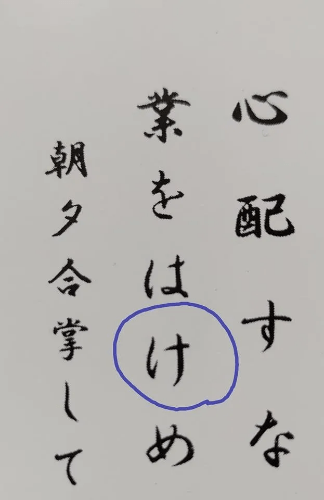 心配すな
業をはけめ
朝夕合掌して